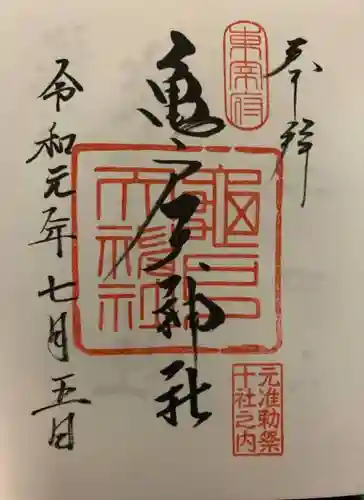 奉拝
東宰府
亀戸天神社
龜戸天神社
元准勅祭
十社之内
令和元年七月五日